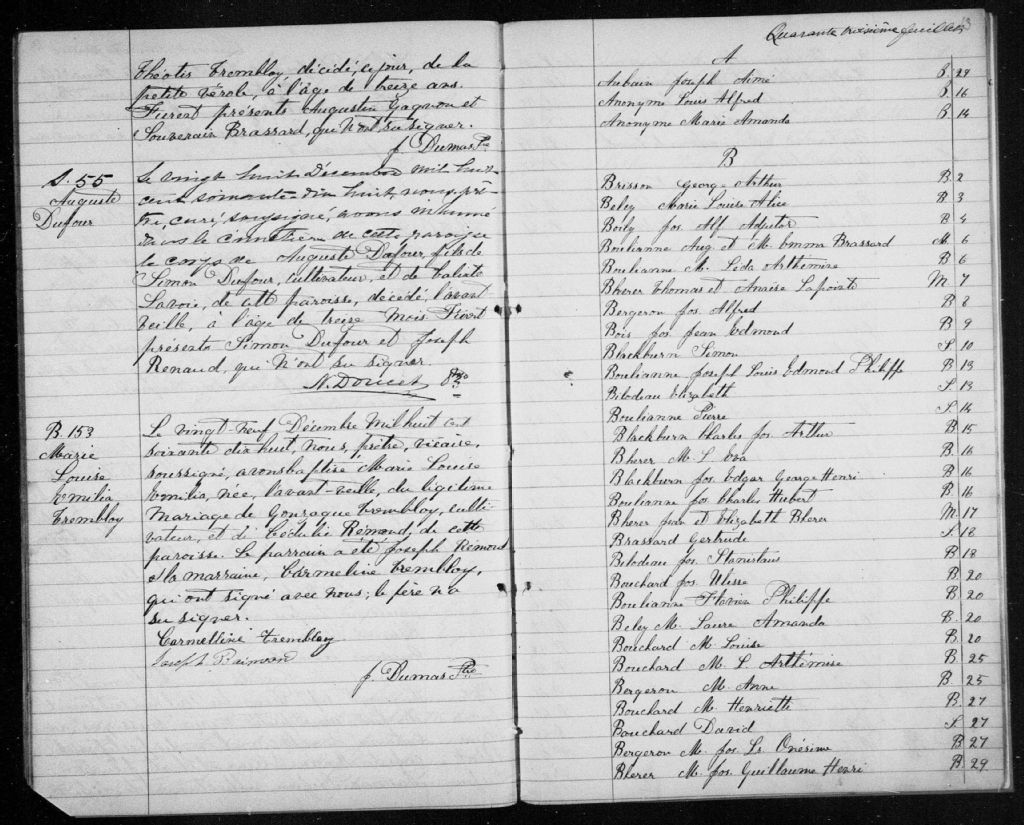 Théotis Tremblay, décédé, ce jour, de la
petite vérole, à l'âge de treize ans.
Furent présents Augustin Gagnon et
Souverain Brassard, qui n'ont su signer.
J. Dumas Ptre
S. 55
Auguste
Dufour
Le vingt huit Décembre mil huit
cent soixante-dix huit, nous, prê-
tre, curé, soussigné, avons inhumé
dans le cimetière de cette paroisse
le corps de Auguste Dufour, fils de
Simon Dufour, cultivateur, et de
Savoie, de cette paroisse, décédé, l'avant
veille, à l'âge de treize mois. Furent
présents Simon Dufour et Joseph
Renaud, qui n'ont su signer.
N. Doucet Ptre
B. 153
Marie
Louise
Emilia
Tremblay
Le vingt-neuf Décembre mil huit cent
soixante dix huit, Nous, prêtre, vicaire,
soussigné, avons baptisé Marie Louise
Emilia, née, l'avant-veille, du légitime
mariage de Gonzague Tremblay, culti-
vateur, et de Cédulie Rémond, de cette
paroisse. Le parrain a été Joseph Rémond
et la marraine, Carmeline Tremblay,
qui ont signé avec nous; le père n'a
su signer.
Carmelline Tremblay
Joseph
J. Dumas Ptre
Quarante troisième feuillet
A
Aubain Joseph Aimé B. 29
Anonyme Louis Alfred B. 16
Anonyme Marie Amanda B. 14
B
Brisson George Arthur B. 2
Beley Marie Louise Alice B. 3
Boily Jos. Alf. Adjutor B. 4
Boulianne Aug. et M. Emma Brassard M. 6
Boulianne M. Leda Arthemise B. 6
Bherer Thomas et Anaïse Lapointe M. 7
Bergeron Jos. Alfred B. 8
Bois Jos. Jean Edmond B. 9
Blackburn Simon S. 10
Boulianne Joseph Louis Edmond Philippe B. 13
Bilodeau Elizabeth S. 13
Boulianne Pierre S. 14
Blackburn Charles Jos. Arthur B. 15
Bherer M. L. Eva B. 16
Blackburn Jos. Edgar George Henri B. 16
Boulianne Jos. Charles Hubert B. 16
Bherer Jean et Elizabeth Bherer M. 17
Brassard Gertrude S. 18
Bilodeau Jos. Stanislaus B. 18
Bouchard Jos. Ulisse B. 20
Boulianne Flavien Philippe B. 20
Beley M. Laure Amanda B. 20
Bouchard M. Louise B. 20
Bouchard M. L. Arthémise B. 25
Bergeron M. Anne B. 25
Bouchard M. Henriette B. 27
Bouchard David S. 27
Bergeron M. Jos. Ls. Onésime B. 27
Bherer M. Jos. Guillaume Henri B. 29